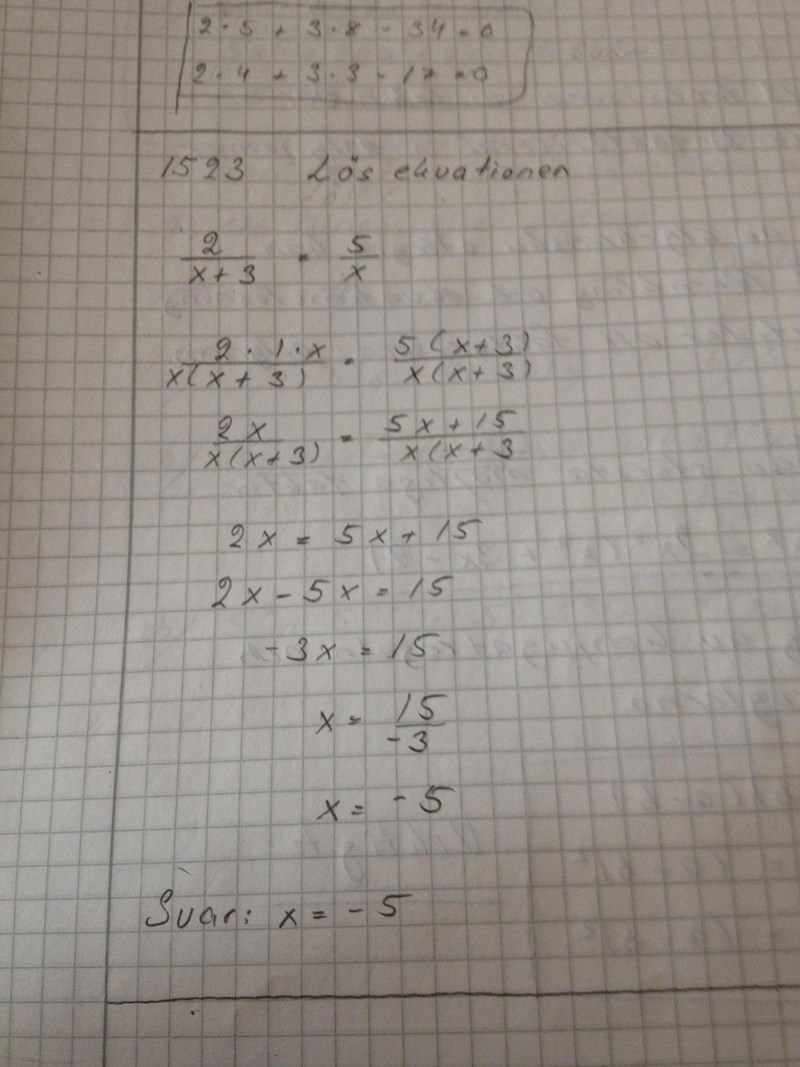 2 · 5 + 3 · 8 - 34 = 0
2 · 4 + 3 · 3 - 17 = 0
1523 Lös ekvationen
2/(x+3) = 5/x
2 · 1 · x/x(x+3) = 5(x+3)/x(x+3)
2x/x(x+3) = 5x+15/x(x+3
2x = 5x + 15
2x - 5x = 15
-3x = 15
x = 15/-3
x = -5
Svar: x = -5